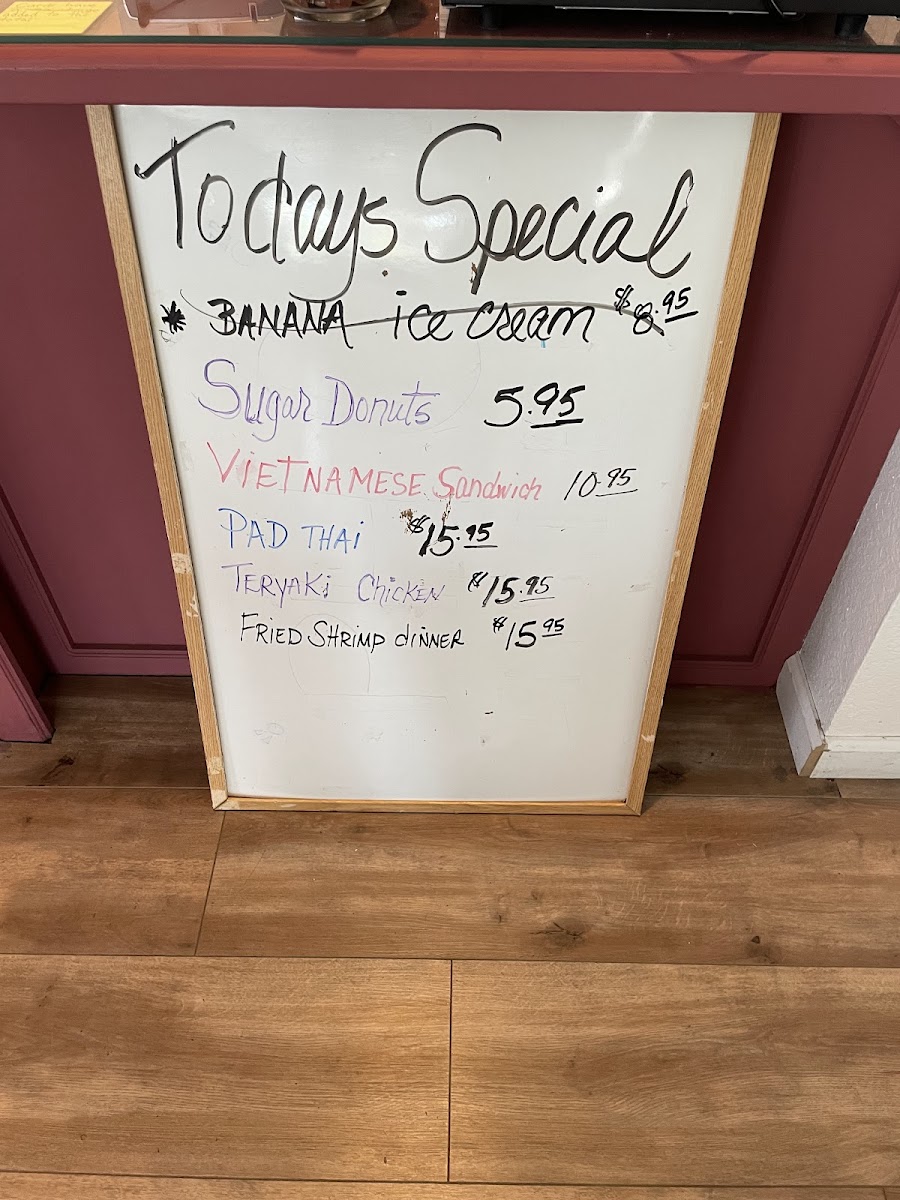 Todays Special
* BANANA ice cream $8.95
Sugar Donuts 5.95
VIETNAMESE Sandwich 10.95
PAD THAi $15.95
TERYAKi Chicken $15.95
FRIED SHRIMP diNNER $15.95